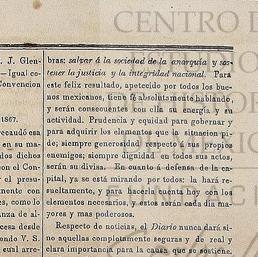 CENTRO D
J. Glen-
—Igual co-
Convencion
1867.
recaudó esa
en su ma-
dos dichos
con el Con-
r el presu-
pital, exis-
ado con lo
anza de al-
cesa desde
londo V. S.
und trae
bras: salvar á la sociedad de la anarquía y sos-
tener la justicia y la integridad nacional. Para
este feliz resultado, apetecido por todos los bue-
nos mexicanos, tiene fé absolutamente hablando,
y serán consecuentes con ella su energía y su
actividad. Prudencia y equidad para gobernar y
para adquirir los elementos que la situacion pi-
de; siempre generosidad respecto de sus propios
enemigos; siempre dignidad en todos sus actos,
serán su divisa. En cuanto á defensa de la ca-
pital, ya se está mirando por todos: la hará re-
sueltamente, y para hacerla cuenta hoy con los
elementos necesarios, y estos serán cada dia ma-
yores y mas poderosos.
Respecto de noticias, el Diario nunca dará si-
no aquellas completamente seguras y de real y
clara importancia para la causa que se sostiene.